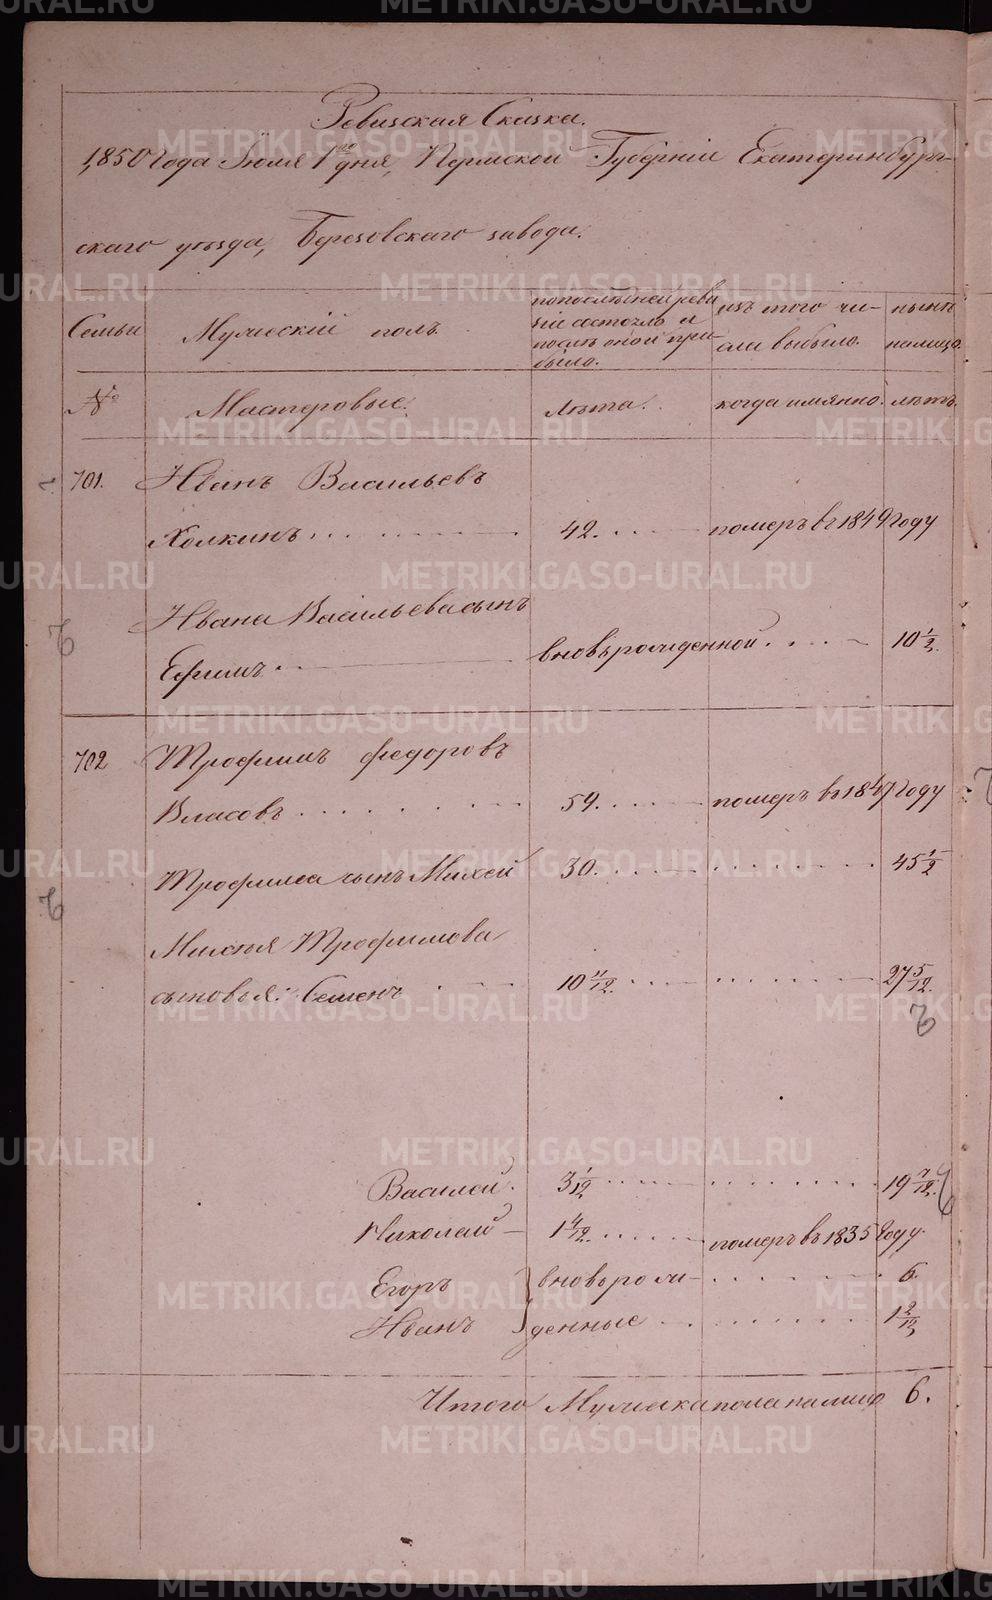 Ревизская Сказка.
1850 Года Июля 1го дня, Пермской Губерніи Екатеринбург-
скаго уѣзда, Березовскаго завода.
Семьи
Мужескій полъ.
попослѣдней реви
зіи состояло и
послѣ оной при-
было.
изъ того чи-
сла выбыло.
нынѣ
налицо.
№
Мастеровые.
Лѣта.
когда имянно.
лѣтъ.
701. Иванъ Васильевъ
Холкинъ 42. померъ въ 1849 Году
Ивана Васильева сынъ
Ефимъ вновьрожденной 10 1/2
702 Трофимъ Федоровъ
Власовъ 59. померъ въ 1847 Году
Трофима сынъ Михей 30. 45 1/2
Михѣя Трофимова
сыновья: Семенъ 10 11/12. 27 5/12.
Василей. 3 1/12 19 7/12.
Николай 1 4/12. померъ въ 1835 Году.
Егоръ вновьрож- 6.
Иванъ денные 1 2/12
Итого Мужеска пола налицо 6.
METRIKI.GASO-URAL.RU